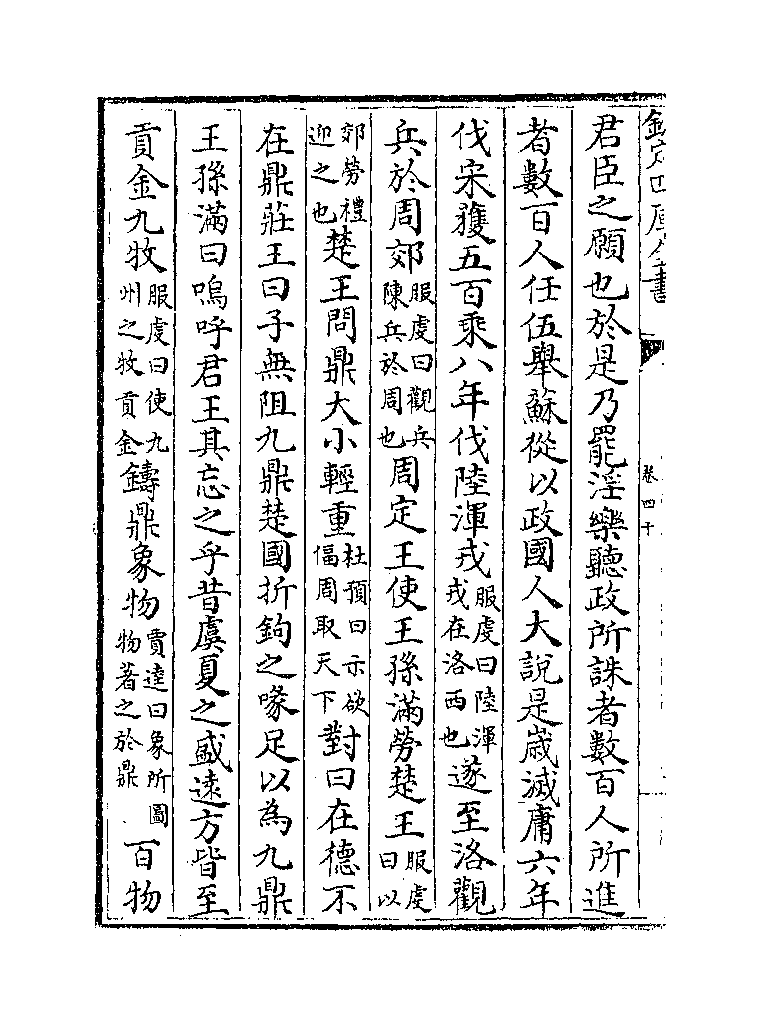 欽定四庫全書
卷四十
君臣之願也於是乃罷淫樂聽政所誅者數百人所進
者數百人任伍舉蘇從以政國人大說是歲滅庸六年
伐宋獲五百乘八年伐陸渾戎服虔曰陸渾戎在洛西也遂至洛觀
兵於周郊服虔曰觀兵陳兵於周也周定王使王孫滿勞楚王服虔曰以
郊勞禮迎之也楚王問鼎大小輕重杜預曰示欲偪周取天下對曰在德不
在鼎莊王曰子無阻九鼎楚國折鉤之喙足以為九鼎
王孫滿曰嗚呼君王其忘之乎昔虞夏之盛遠方皆至
貢金九牧服虔曰使九州之牧貢金鑄鼎象物賈逵曰象所圖物著之於鼎百物